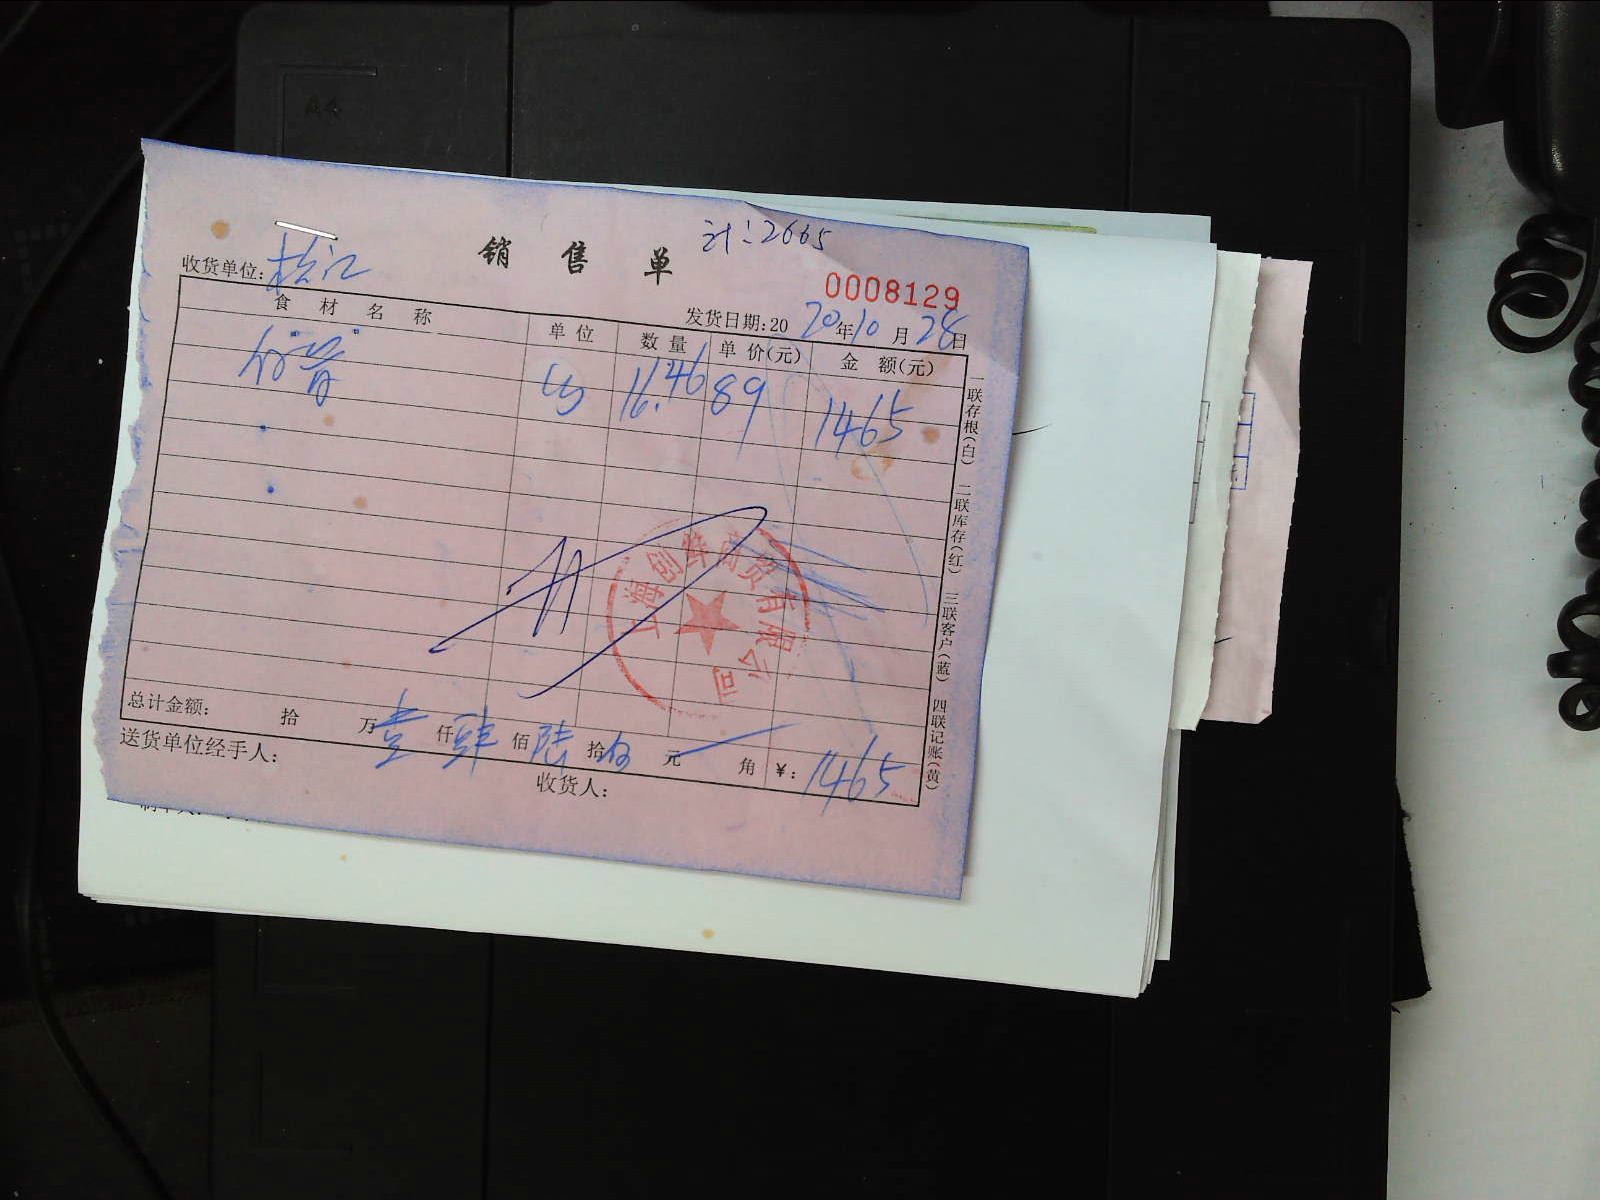 计:2665
销售单
0008129
收货单位:松江
发货日期:2020年10月28日
食材名称 单位 数量 单价(元) 金额(元)
16.46 89 1465
上海创鲜商贸有限公司
总计金额: 拾 万壹仟肆佰陆拾伍元 角 ¥:1465
送货单位经手人: 收货人:
一联存根(白) 二联库存(红) 三联客户(蓝) 四联记账(黄)